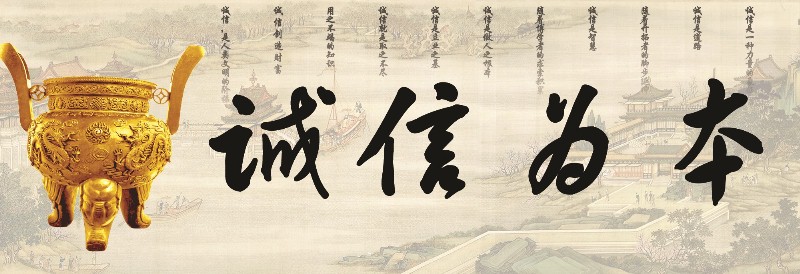 诚信为本
诚信是一种力量的
诚信是道路
随着开拓者的脚步
诚信是智慧
随着博学者的求索积累
诚信是做人之根本
诚信是立业之基
诚信就是取之不尽
用之不竭的知识
诚信创造财富
诚信，是人类文明的阶